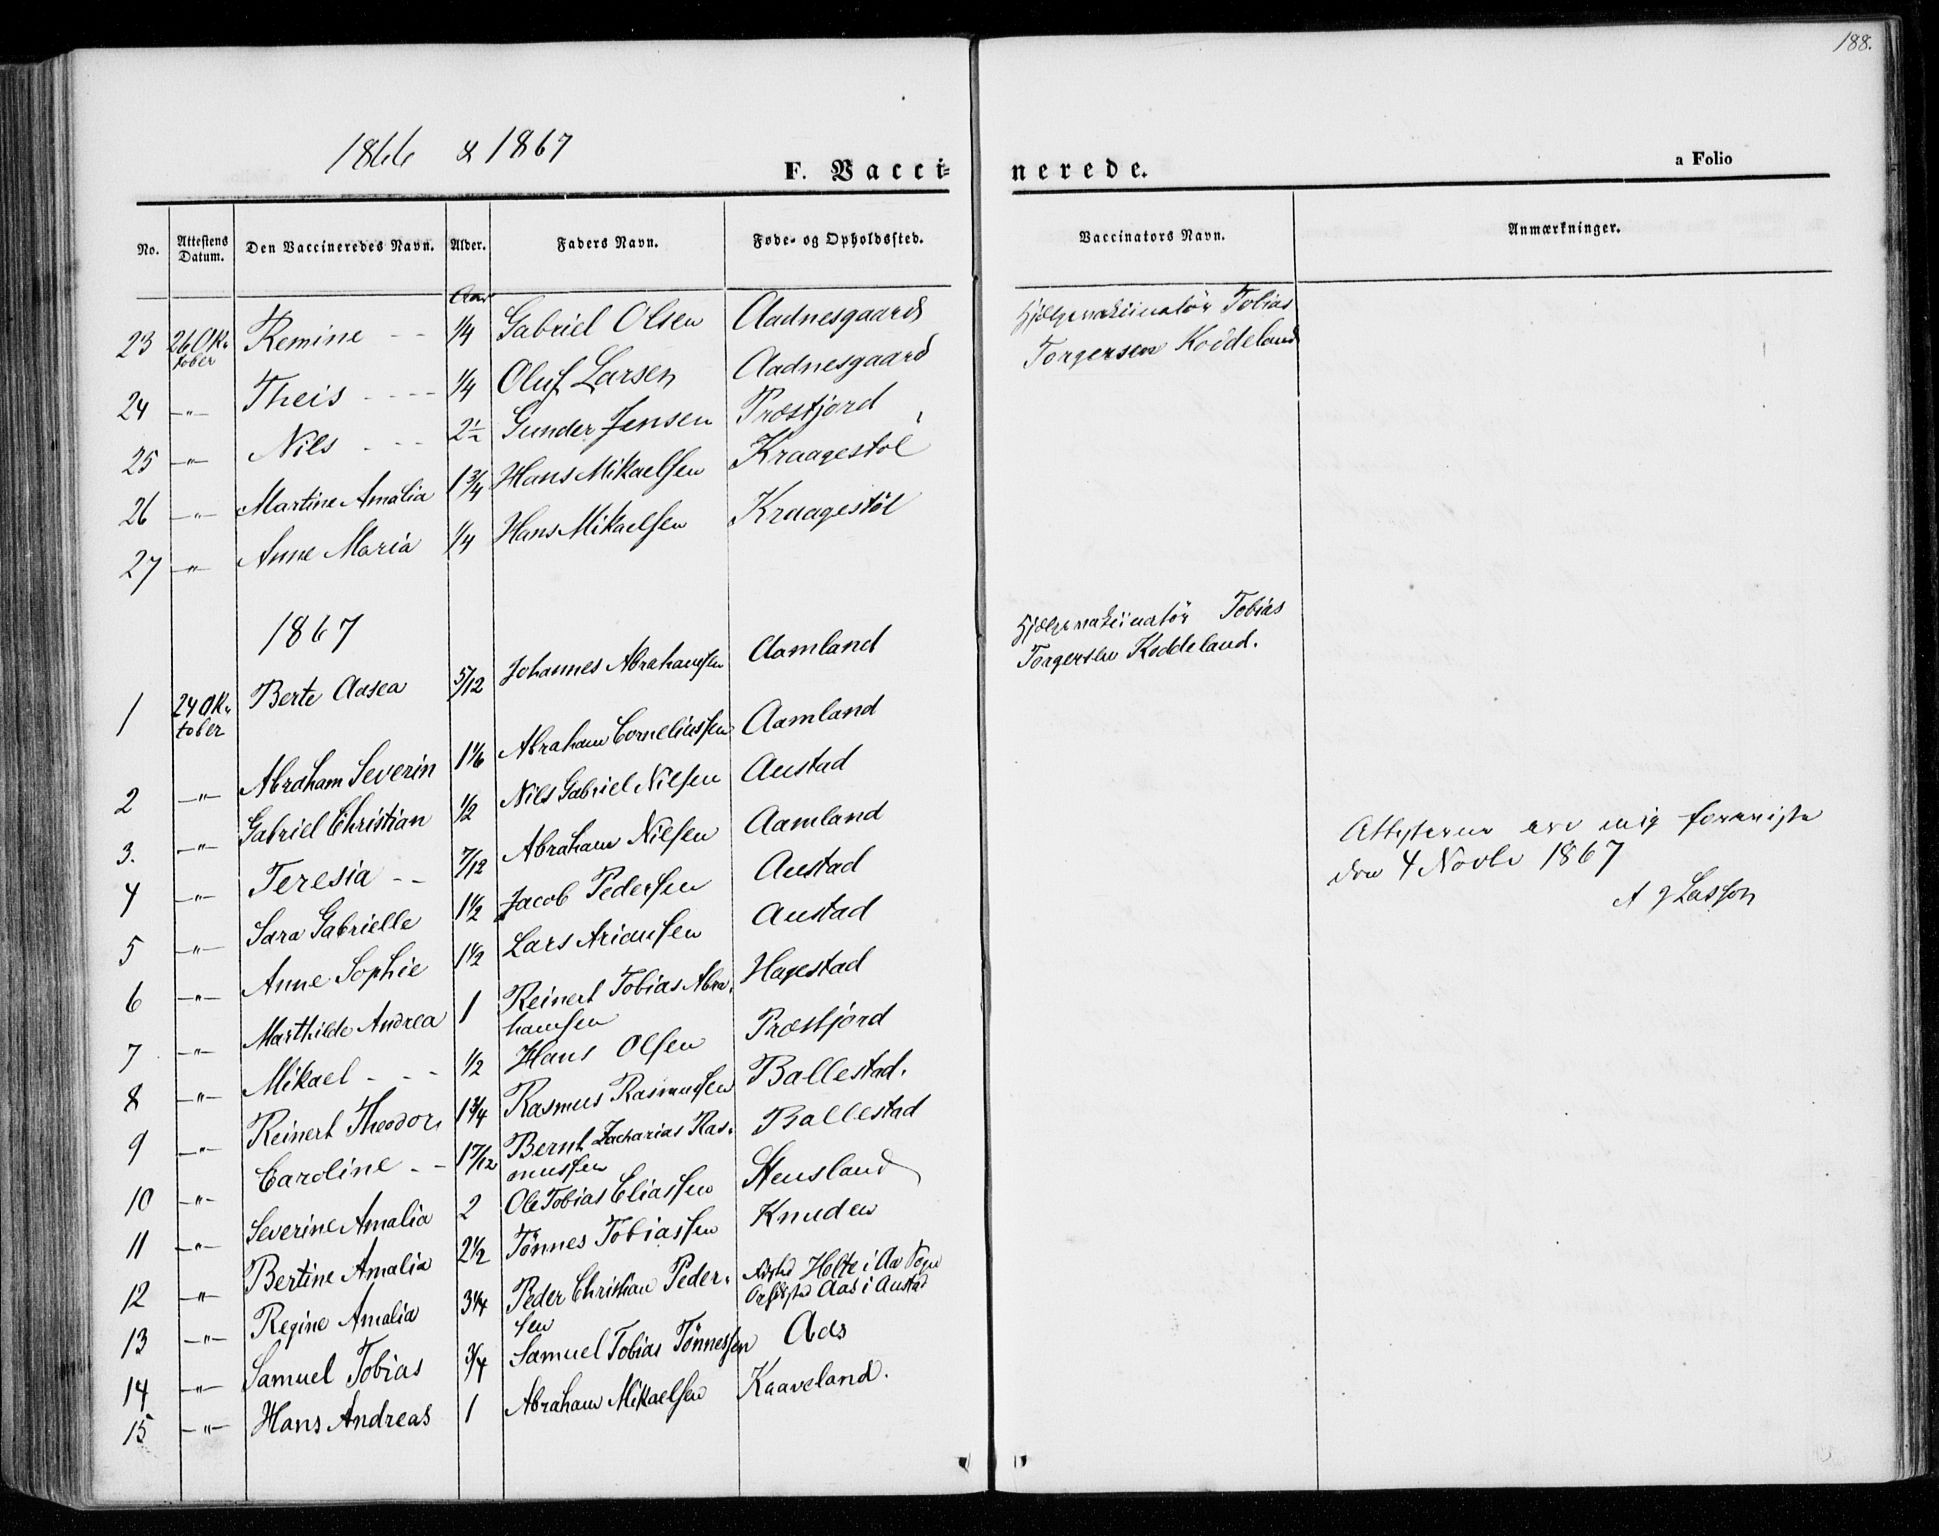 188.
1866 & 1867
F. Vaccinerede.
a Folio
No. Attestens Datum. Den Vaccineredes Navn. Alder. Faders Navn. Føde- og Opholdssted. Vaccinators Navn. Anmærkninger.
Aar
23 26 Oktober Remine -- 1/4 Gabriel Olsen Aadnesgaard Hjelpevakcinatør Tobias Torgersen Koddeland
24 -"- Theis ---- 1/4 Oluf Larsen Aadnesgaard
25 -"- Nils --- 2½ Gunder Jensen Præstjord
26 -"- Martine Amalia 1¾ Hans Mikaelsen Kraagestøl
27 -"- Anne Maria 1/4 Hans Mikaelsen Kraagestøl
1867
1 24 Oktober Berte Aasea 5/12 Johannes Abrahamsen Aamland Hjelpevakcinatør Tobias Torgersen Koddeland.
2 -"- Abraham Severin 1 1/6 Abraham Corneliussen Aamland
3. -"- Gabriel Christian 1/2 Nils Gabriel Nilsen Austad
4 -"- Teresia -- 7/12 Abraham Nilsen Aamland
5 -"- Sara Gabrielle 1½ Jacob Pedersen Austad
6 -"- Anne Sophie 1½ Lars Ariansen Austad
7 -"- Marthilde Andrea 1 Reinert Tobias Abrahamsen Hagestad
8 -"- Mikael --- 1/2 Hans Olsen Præstjord
9 -"- Reinert Theodor 1¾ Rasmus Rasmussen Ballestad.
10 -"- Caroline -- 1 7/12 Bernt Zacharias Rasmussen Ballestad
11 -"- Severine Amalia 2 Ole Tobias Eliassen Stensland
12 -"- Bertine Amalia 2½ Tønnes Tobiassen Knuden
13 -"- Regine Amalia 3¼ Peder Christian Pedersen Holte i Aa Sogn Aas i Austad
14 -"- Samuel Tobias 3/4 Samuel Tobias Tønnessen Aas
15 -"- Hans Andreas 1 Abraham Mikaelsen Kaaveland.
Attesterne ere mig foreviste
den 4 Novbr 1867
A J Lasson